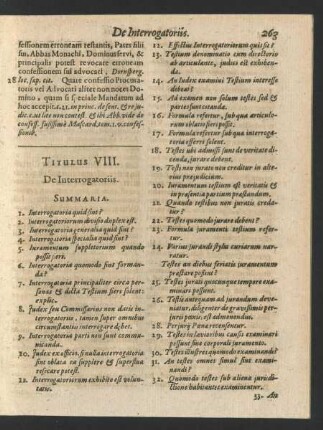 De Interrogatoriis. 263
fessionem erroneam testantis, Pater filii
sui, Abbas Monachi, Dominus servi, &
principalis potest revocare erroneam
confessionem sui advocati. Dornsperg.
28 loc. sup. cit. Quare confessio Procura-
toris vel Advocati aliter non nocet Domi-
no, quam si speciale Mandatum ad
hoc accepit.
TITULUS VIII.
De Interrogatoriis.
SUMMARIA.
1. Interrogatoria quid sint?
2. Interrogatoriorum divisio duplex est.
3. Interrogatoria generalia quid sint?
4. Interrogatoria specialia quid sint?
5. Iuramentum suppletorium quando
possit jurari.
6. Interrogatoria quomodo sint forman-
da?
7. Interrogatoria principaliter circa per-
sonas & dicta Testium fieri solent:
explic.
8. Iudex seu Commissarius non daris in-
terrogatoriis, tamen super omnibus
circumstantiis interrogare debet.
9. Interrogatoria parti adversæ non sunt
communicanda.
10. Iudex ex officio, si nulla interrogatoria
sint oblata ea supplere & superflua
resecare potest.
11. Interrogatoriorum exhibitio est volun-
taria.
12. Effectus Interrogatoriorum quis sit?
13. Testium denominatio cum directorio
ab articulante, judici est exhiben-
da.
14. An Iudex examini Testium interesse
debeat?
15. Ad examen non solum testes sed &
partes sunt citandæ.
16. Formula refertur, sub qua articulo-
rum relatio fieri possit.
17. Formula refertur sub qua interroga-
toria offerri solent.
18. Testes ubi admissi sunt de veritate di-
cenda, jurare debent.
19. Testi non jurato non creditur in alte-
rius præjudicium.
20. Iuramentum testium est veritatis &
in præsentia partium præstandum.
21. Quando testibus non juratis creda-
tur?
22. Testes quomodo jurare debent?
23. Formula juramenti testium refer-
tur.
24. Pœnus jurandi stylus curiarum nar-
ratur.
Testes an diebus feriatis juramentum
præstare possint?
25. Testes jurati quocunque tempore exa-
minari possunt.
26. Testis antequam ad jurandum deve-
niatur, diligenter de gravissimis per-
jurii pœnis, est admonendus.
28. Perjurii Pœna recensentur.
29. Testes in levioribus causis examinari
possunt sine corporali juramento.
30. Testes illustres quomodo examinandi?
31. An testes omnes simul sint exami-
nandi?
32. Quomodo testes sub aliena juris-
dictione habitantes examinentur?
33. An